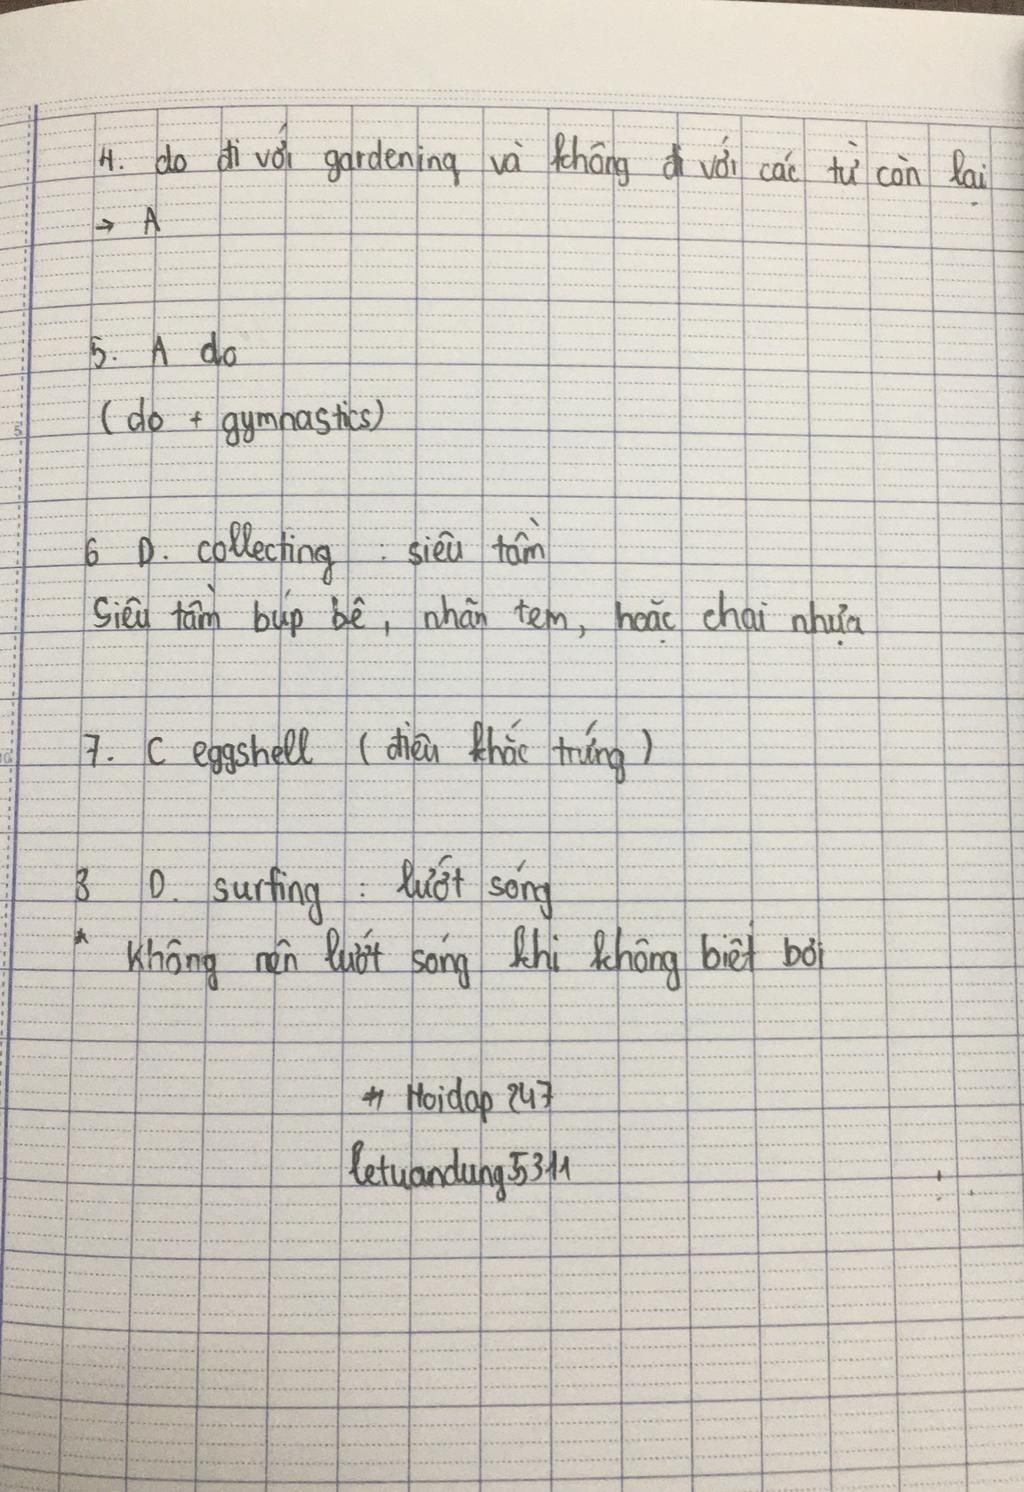 4. do đi với gardening và không đi với các từ còn lại
→ A
5. A do
(do + gymnastics)
6 D. collecting : siêu tầm
Siêu tầm búp bê, nhãn tem, hoặc chai nhựa
7. C eggshell (điêu khắc trứng)
8 D. surfing : lướt sóng
* Không nên lướt sóng khi không biết bơi
# Hoidap 247
letuandung5311